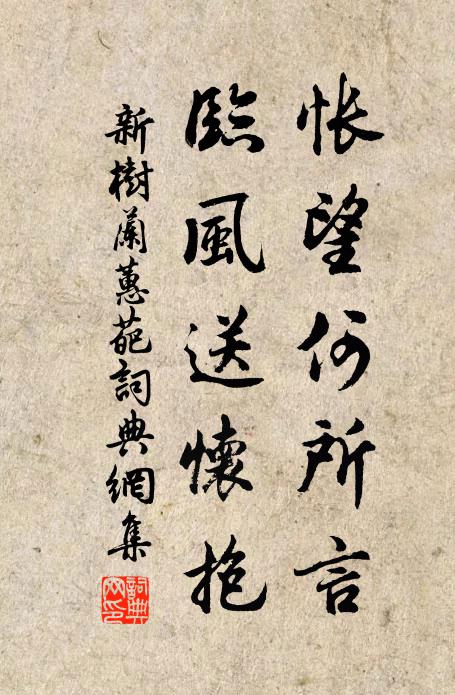 悵望何所言
臨風送懷抱
新樹蘭蕙葩詞典網集
詞典
網印